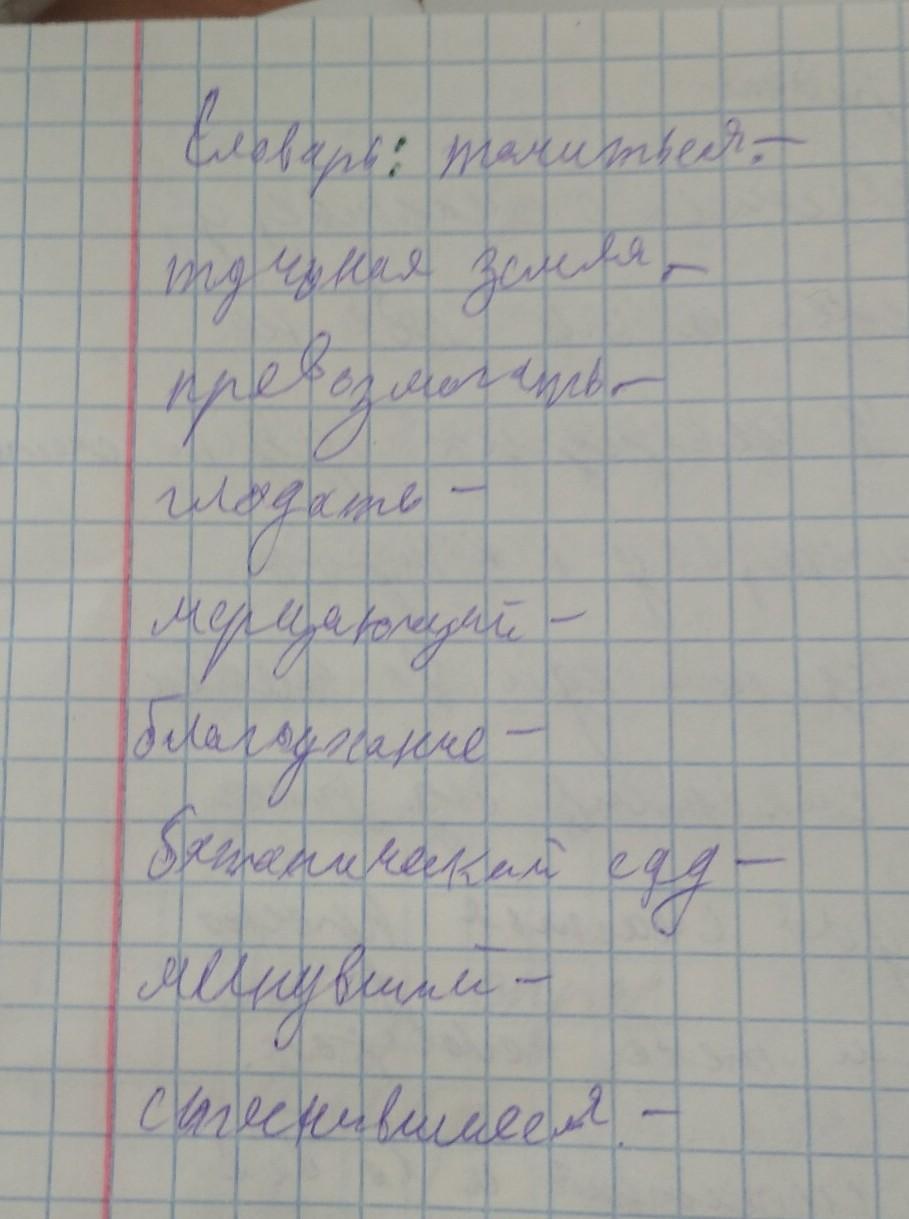 Словарь: томиться. –
тучная земля –
превозмогать –
глодать –
мерцающий –
благоухание –
ботанический сад –
минувший –
стеснившиеся. –